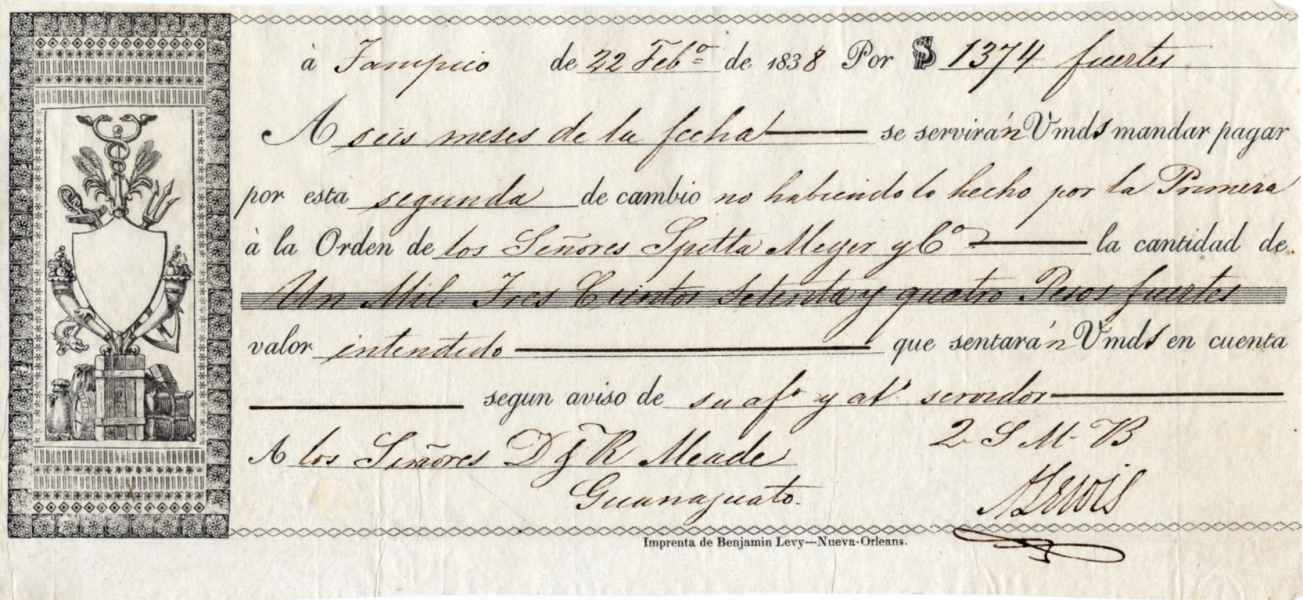 à Tampico de 22 Feb.º de 1838 Por $ 1374 fuertes
A seis meses de la fecha se servirán Vmds mandar pagar
por esta segunda de cambio no habiendolo hecho por la Primera
à la Orden de los Señores Spitta Meyer y Cº la cantidad de
Un Mil Tres Cientos Setenta y quatro Pesos fuertes
valor entendido que sentarán Vmds en cuenta
segun aviso de su afº y atº servidor
Q S M B
A los Señores D & R Meade
Guanajuato.
Imprenta de Benjamin Levy—Nueva-Orleans.